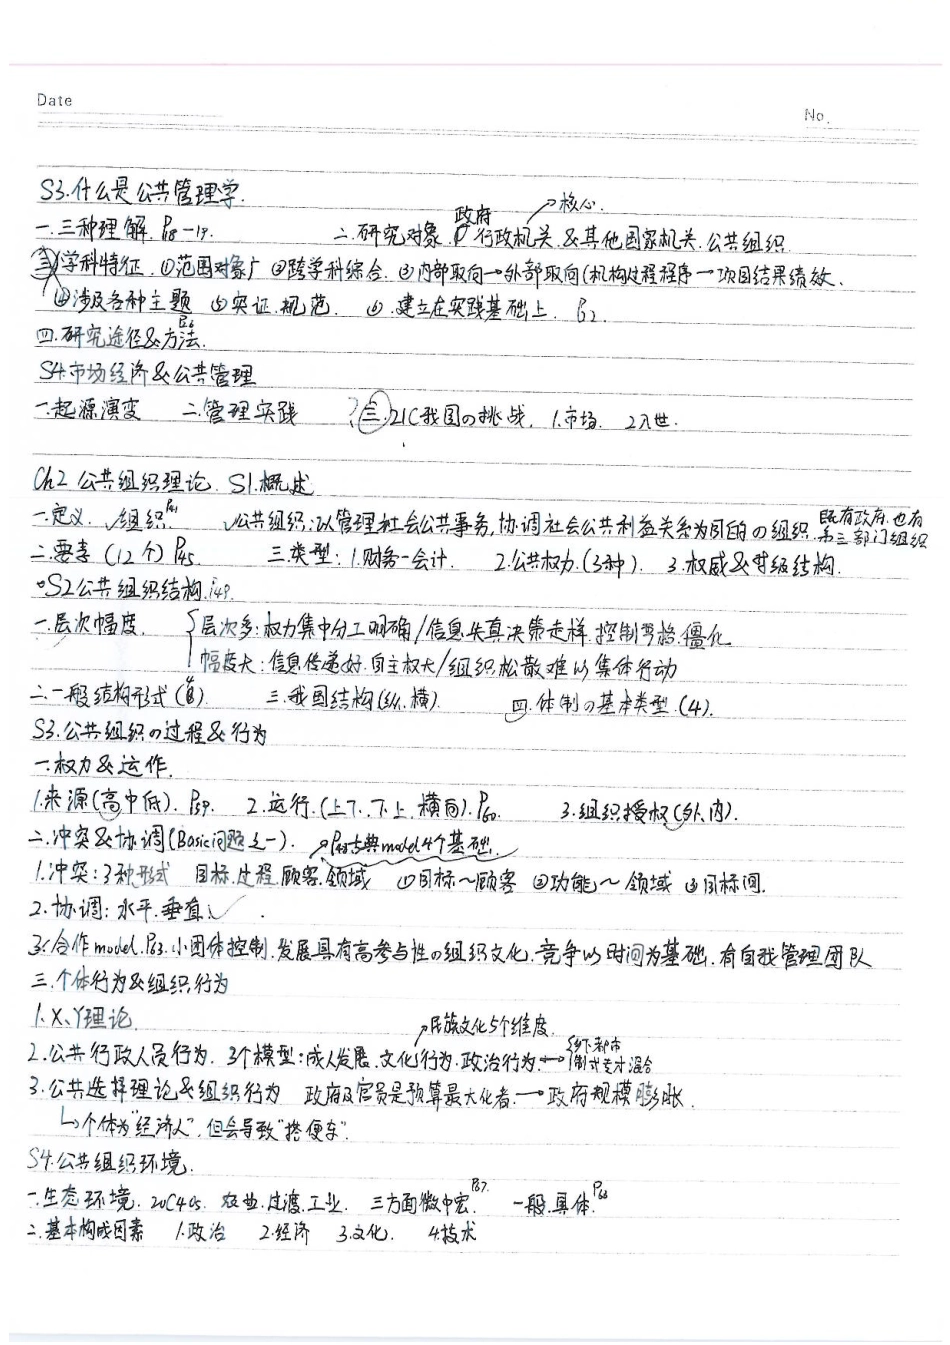 Date
No.
S3.什么是公共管理学.
一.三种理解.P8-19. 二.研究对象 政府行政机关&其他国家机关.公共组织. →核心.
三.学科特征.①范围对象广②跨学科综合.③内部取向→外部取向(机构过程程序→项目结果绩效.
④涉及各种主题 ⑤实证.规范. ⑥.建立在实践基础上.
四.研究途径&方法.
S4.市场经济&公共管理
一.起源演变 二.管理实践 ?三.21C我国の挑战. 1.市场. 2入世.
Ch2 公共组织理论. S1.概述
一.定义. √组织 √公共组织:以管理社会公共事务,协调社会公共利益关系为目的の组织.既有政府.也有第三部门组织
二.要素(12个)P45. 三.类型:1.财务-会计. 2.公共权力.(3种). 3.权威&等级结构.
S2公共组织结构.P49.
一.层次幅度. {层次多:权力集中分工明确/信息失真决策走样.控制严格僵化
幅度大:信息传递好.自主权大/组织松散难以集体行动
二.一般结构形式( ) 三.我国结构(纵.横). 四.体制の基本类型.(4).
S3.公共组织の过程&行为
一.权力&运作.
1.来源(高中低).P59. 2.运行.(上下.下上.横向).P60. 3.组织授权(外.内).
二.冲突&协调(Basic问题之一). 古典model4个基础.
1.冲突:3种形式 目标.过程.顾客.领域 ①目标~顾客 ②功能~领域 ③目标间.
2.协调:水平.垂直√.
3.合作model.P83.小团体控制.发展具有高参与性の组织文化.竞争以时间为基础.有自我管理团队
三.个体行为&组织行为
1.X、Y理论. →民族文化5个维度.
2.公共行政人员行为. 3个模型:成人发展.文化行为.政治行为.
3.公共选择理论&组织行为 政府及官员是预算最大化者.→政府规模膨胀.
↳个体为"经济人".但会导致"搭便车".
S4.公共组织环境.
一.生态环境. 20C40s. 农业.过渡.工业. 三方面微中宏.P87. 一般.具体.P88
二.基本构成因素 1.政治 2.经济 3.文化. 4.技术